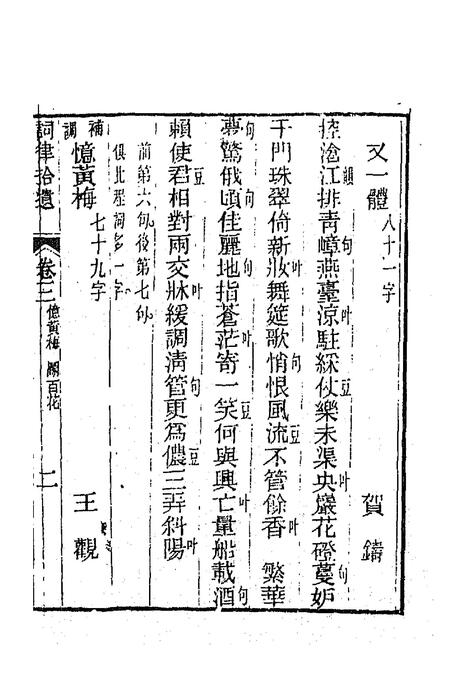 又一體 八十一字 賀鑄
控滄江排青嶂燕臺涼駐綵仗樂未渠央巖花磴蔓妒
千門珠翠倚新妝舞筵歌悄恨風流不管餘香 繁華
夢驚俄頃佳麗地指蒼茫寄一笑何與興亡量船載酒
賴使君相對兩交牀緩調淸管更爲儂三弄斜陽
前第六句後第七句
俱北程詞多一字
補調 憶黃梅 七十九字 王觀
詞律拾遺 卷三 憶黃梅 二